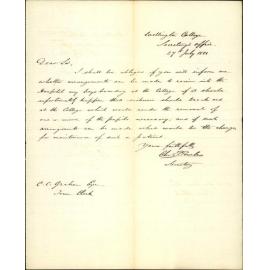 Wellington College
Secretary's Office
27th July 1881
Dear Sir,
I shall be obliged if you will inform me
whether arrangements can be made to receive into the
Hospital any boys boarding at the College if it should
unfortunately happen that sickness should break out
at the College which would render the removal of
one or more of the pupils necessary, and if such
arrangements can be made what would be the charge
for maintenance of such a patient.
Yours faithfully
Secretary
C. C. Graham Esqr
Town Clerk